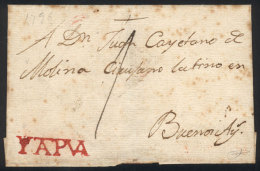 1798
A Dn Juan Cayetano de
Molina Cirujano latino en
1
Buenos Ay.s
YAPVA